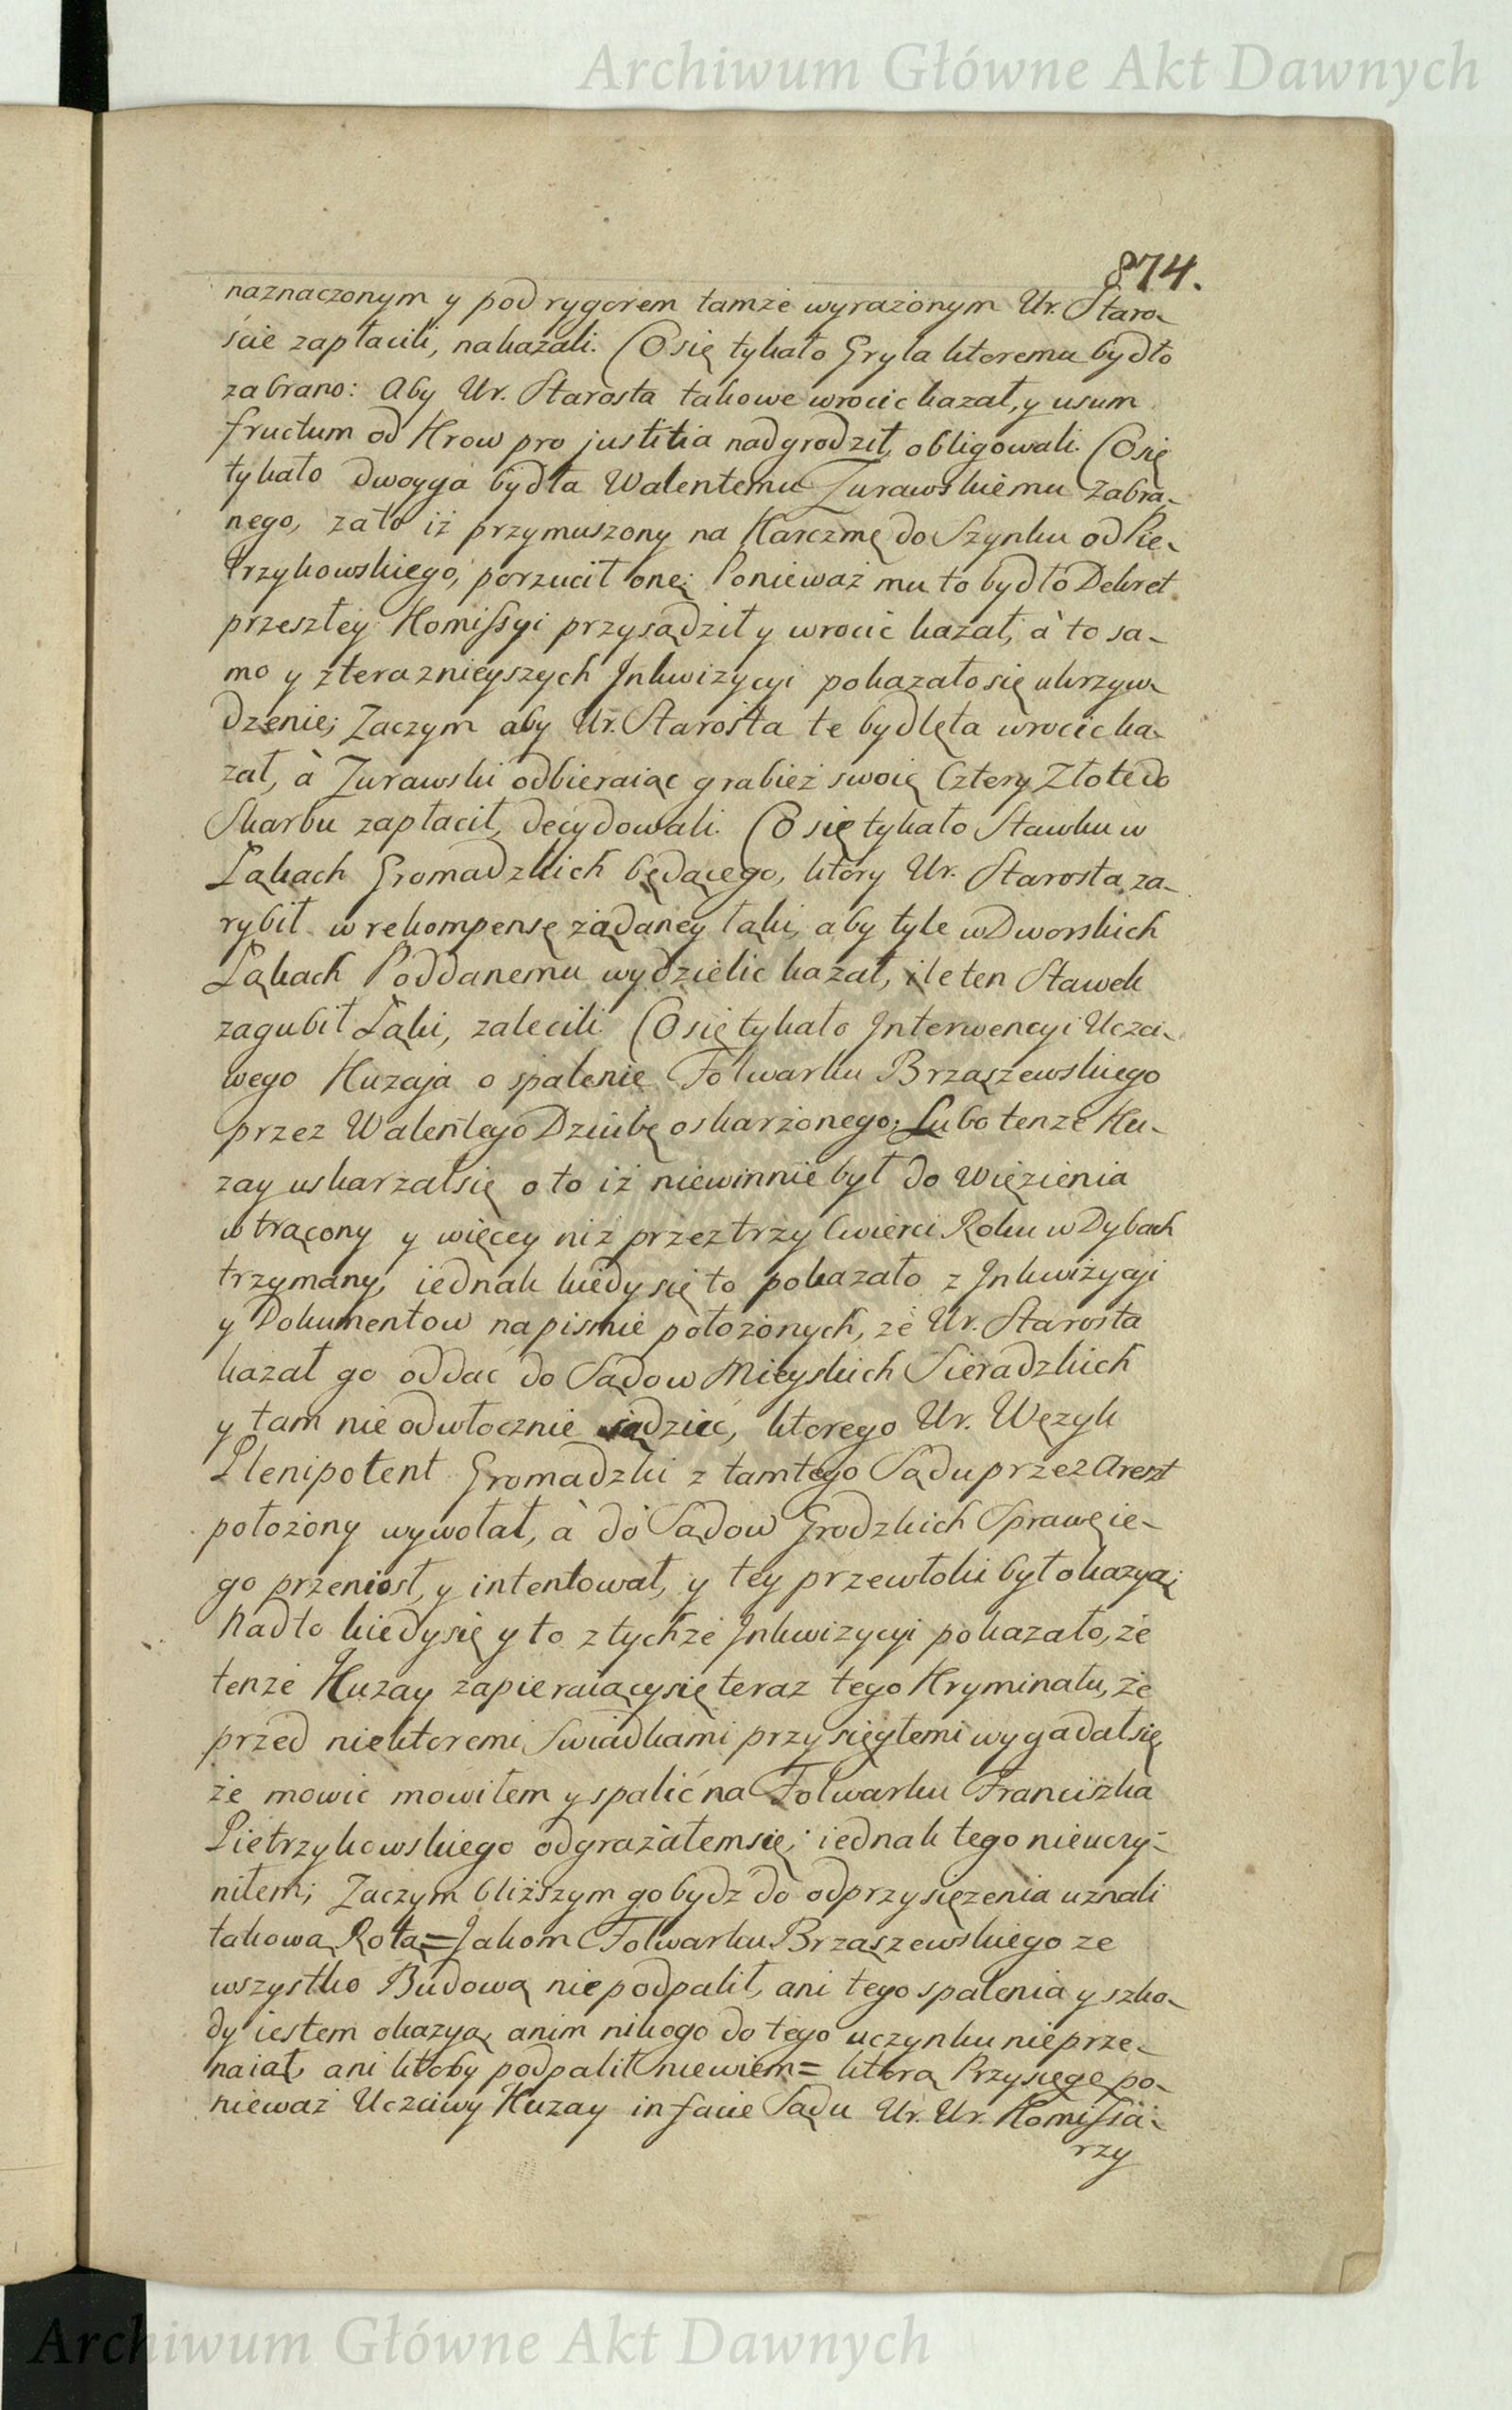 Archiwum Główne Akt Dawnych
874.
naznaczonym y pod rygorem tamże wyrażonym Ur. Staro-
ście zapłacili, nakazali. Co się tykało Gryla ktoremu bydło
zabrano: Aby Ur. Starosta takowe wrocic kazał, y usum
fructum od Krow pro justitia nadgrodził, obligowali. Co się
tykało dwoyga bydła Walentemu Zurawskiemu zabra-
nego, zato iż przymuszony na Karczmę do Szynku od Pie-
trzykowskiego, porzucił onę; Ponieważ mu to bydło Dekret
przeszłey Komissyi przysądził y wrocić kazał, à to sa-
mo y z terazniejszych Inkwizycyi pokazało się ukrzyw-
dzenie; Zaczym aby Ur. Starosta te bydlęta wrocic ka-
zał, à Zurawski odbieraiąc grabież swoię Cztery Złote do
Skarbu zapłacił, decydowali. Co się tykało Stawku w
Łąkach Gromadzkich będącego, ktory Ur. Starosta za-
rybił w rekompensę żądaney łąki, aby tyle w Dworskich
Łąkach Poddanemu wydzielic kazał, ile ten Stawek
zagubił Łąki, zalecili. Co się tykało Interwencyi Uczci-
wego Kuzaja o spalenie Folwarku Brzączewskiego
przez Walentego Dziubę oskarżonego; Lubo tenze Ku-
zay uskarzał się o to iż niewinnie był do Więzienia
wtrącony y więcey niż przez trzy Cwierci Roku w Dybach
trzymany, iednak kiedy się to pokazało z Inkwizycyi
y Dokumentow na pismie położonych, że Ur. Starosta
kazał go oddać do Sądow Mieyskich Sieradzkich
y tam nie odwłocznie sądzić, ktorego Ur. Wężyk
Plenipotent Gromadzki z tamtego Sądu przez Areszt
położony wywołał, à do Sądow Grodzkich Sprawę ie-
go przeniosł, y intentował, y tey przewłoki był okazyą;
Nadto kiedy się y to z tychże Inkwizycyi pokazało, że
tenże Kuzay zapieraiący się teraz tego Kryminału, że
przed niektoremi Swiadkami przysięgłemi wygadał się,
że mowic mowiłem y spalić na Folwarku Franciszka
Pietrzykowskiego odgrażałem się; iednak tego nieuczy-
niłem; Zaczym bliższym go bydz do odprzysiężenia uznali
takową Rotą = Jakom Folwarku Brzączewskiego ze
wszystko Budową nie podpalił, ani tego spalenia y szko-
dy iestem okazyą, anim nikogo do tego uczynku nieprze-
naiął, ani ktoby podpalił niewiem = ktorą Przysięgę po-
nieważ Uczciwy Kuzay in facie Sądu Ur. Ur. Komissa-
rzy
Archiwum Główne Akt Dawnych